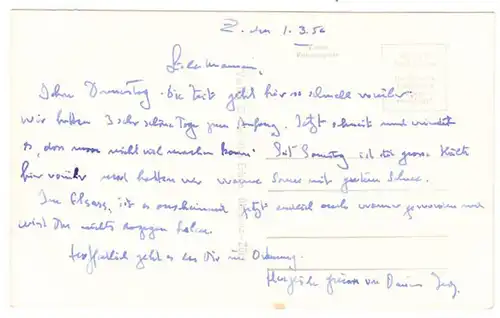 Z. den 1.3.56
Liebe Mamman,
Schon Donnerstag – die Zeit geht hier so schnell vorüber.
Wir hatten 3 sehr schöne Tage zum Anfang. Jetzt schneit und windet
es, dass man nicht viel machen kann. Seit Sonntag ist die grosse Kälte
hier vorüber und hatten wir warme Sonne mit gutem Schnee.
Im Elsass, ist es anscheinend jetzt endlich auch wärmer geworden und
wirst Du nichts dagegen haben.
Hoffentlich geht es bei Dir in Ordnung.
Herzliche Grüsse von